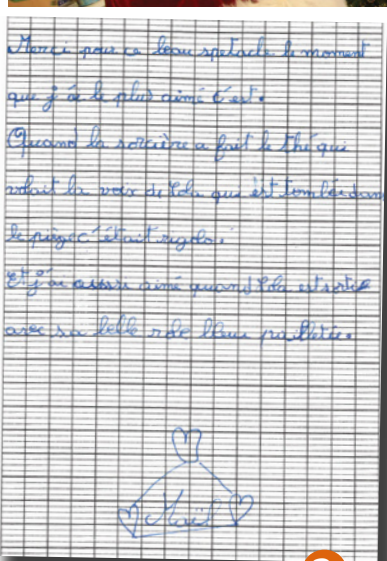 Merci pour ce beau spetacle le moment
que j'ai le plus aimé c'est.
Quand la sorcière a fait le thé qui
volait la voix de Lola que est tombée dans
le piège c'était rigolo.
Et j'ai aussi aimé quand Lola est sortie
avec sa belle robe bleue pailletée.
Maël